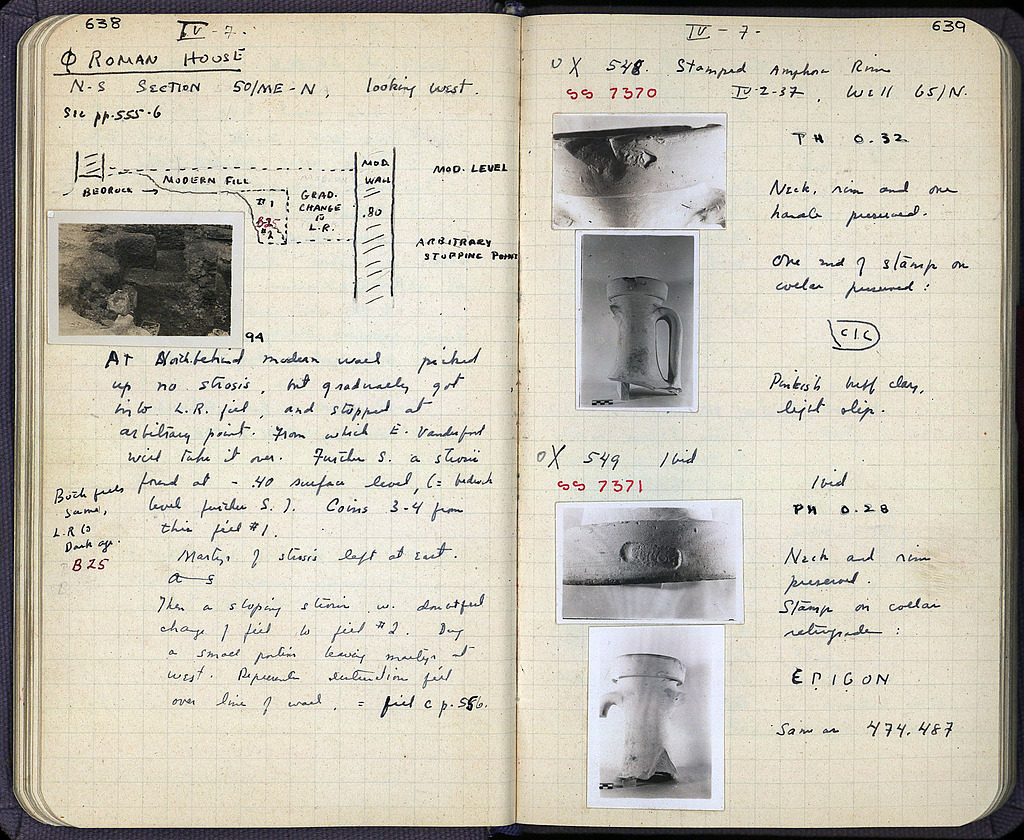 638
IV - 7.
Φ ROMAN HOUSE
N-S SECTION 50/ME-N, looking west.
See pp. 555-6
MOD. WALL
MOD. LEVEL
MODERN FILL
BEDROCK →
#1
B25
#2
GRAD. CHANGE to L.R.
.80
ARBITRARY
STOPPING POINT
94
At North behind modern wall picked
up no strosis, but gradually got
into L.R. fill, and stopped at
arbitrary point. From which E. Vanderpool
will take it over. Further S. a strosis
found at - .40 surface level, (= bedrock
level further S.). Coins 3-4 from
this fill #1.
Both fills
same,
L.R. to
Dark age.
B25
Martyr of strosis left at East.
Then a sloping strosis w. doubtful
change of fill to fill #2. Dug
a small portion leaving martyr at
west. Represents destruction fill
over line of wall, = fill C p. 556.
639
IV - 7.
X 548. Stamped Amphora Rim
SS 7370
IV-2-37, Well 65/N.
TH 0.32
Neck, rim and one
handle preserved.
One end of stamp on
collar preserved:
CIC
Pinkish buff clay,
light slip.
X 549 Ibid
SS 7371
Ibid
PH 0.28
Neck and rim
preserved.
Stamp on collar
retrograde:
EPIGON
Same as 474, 487